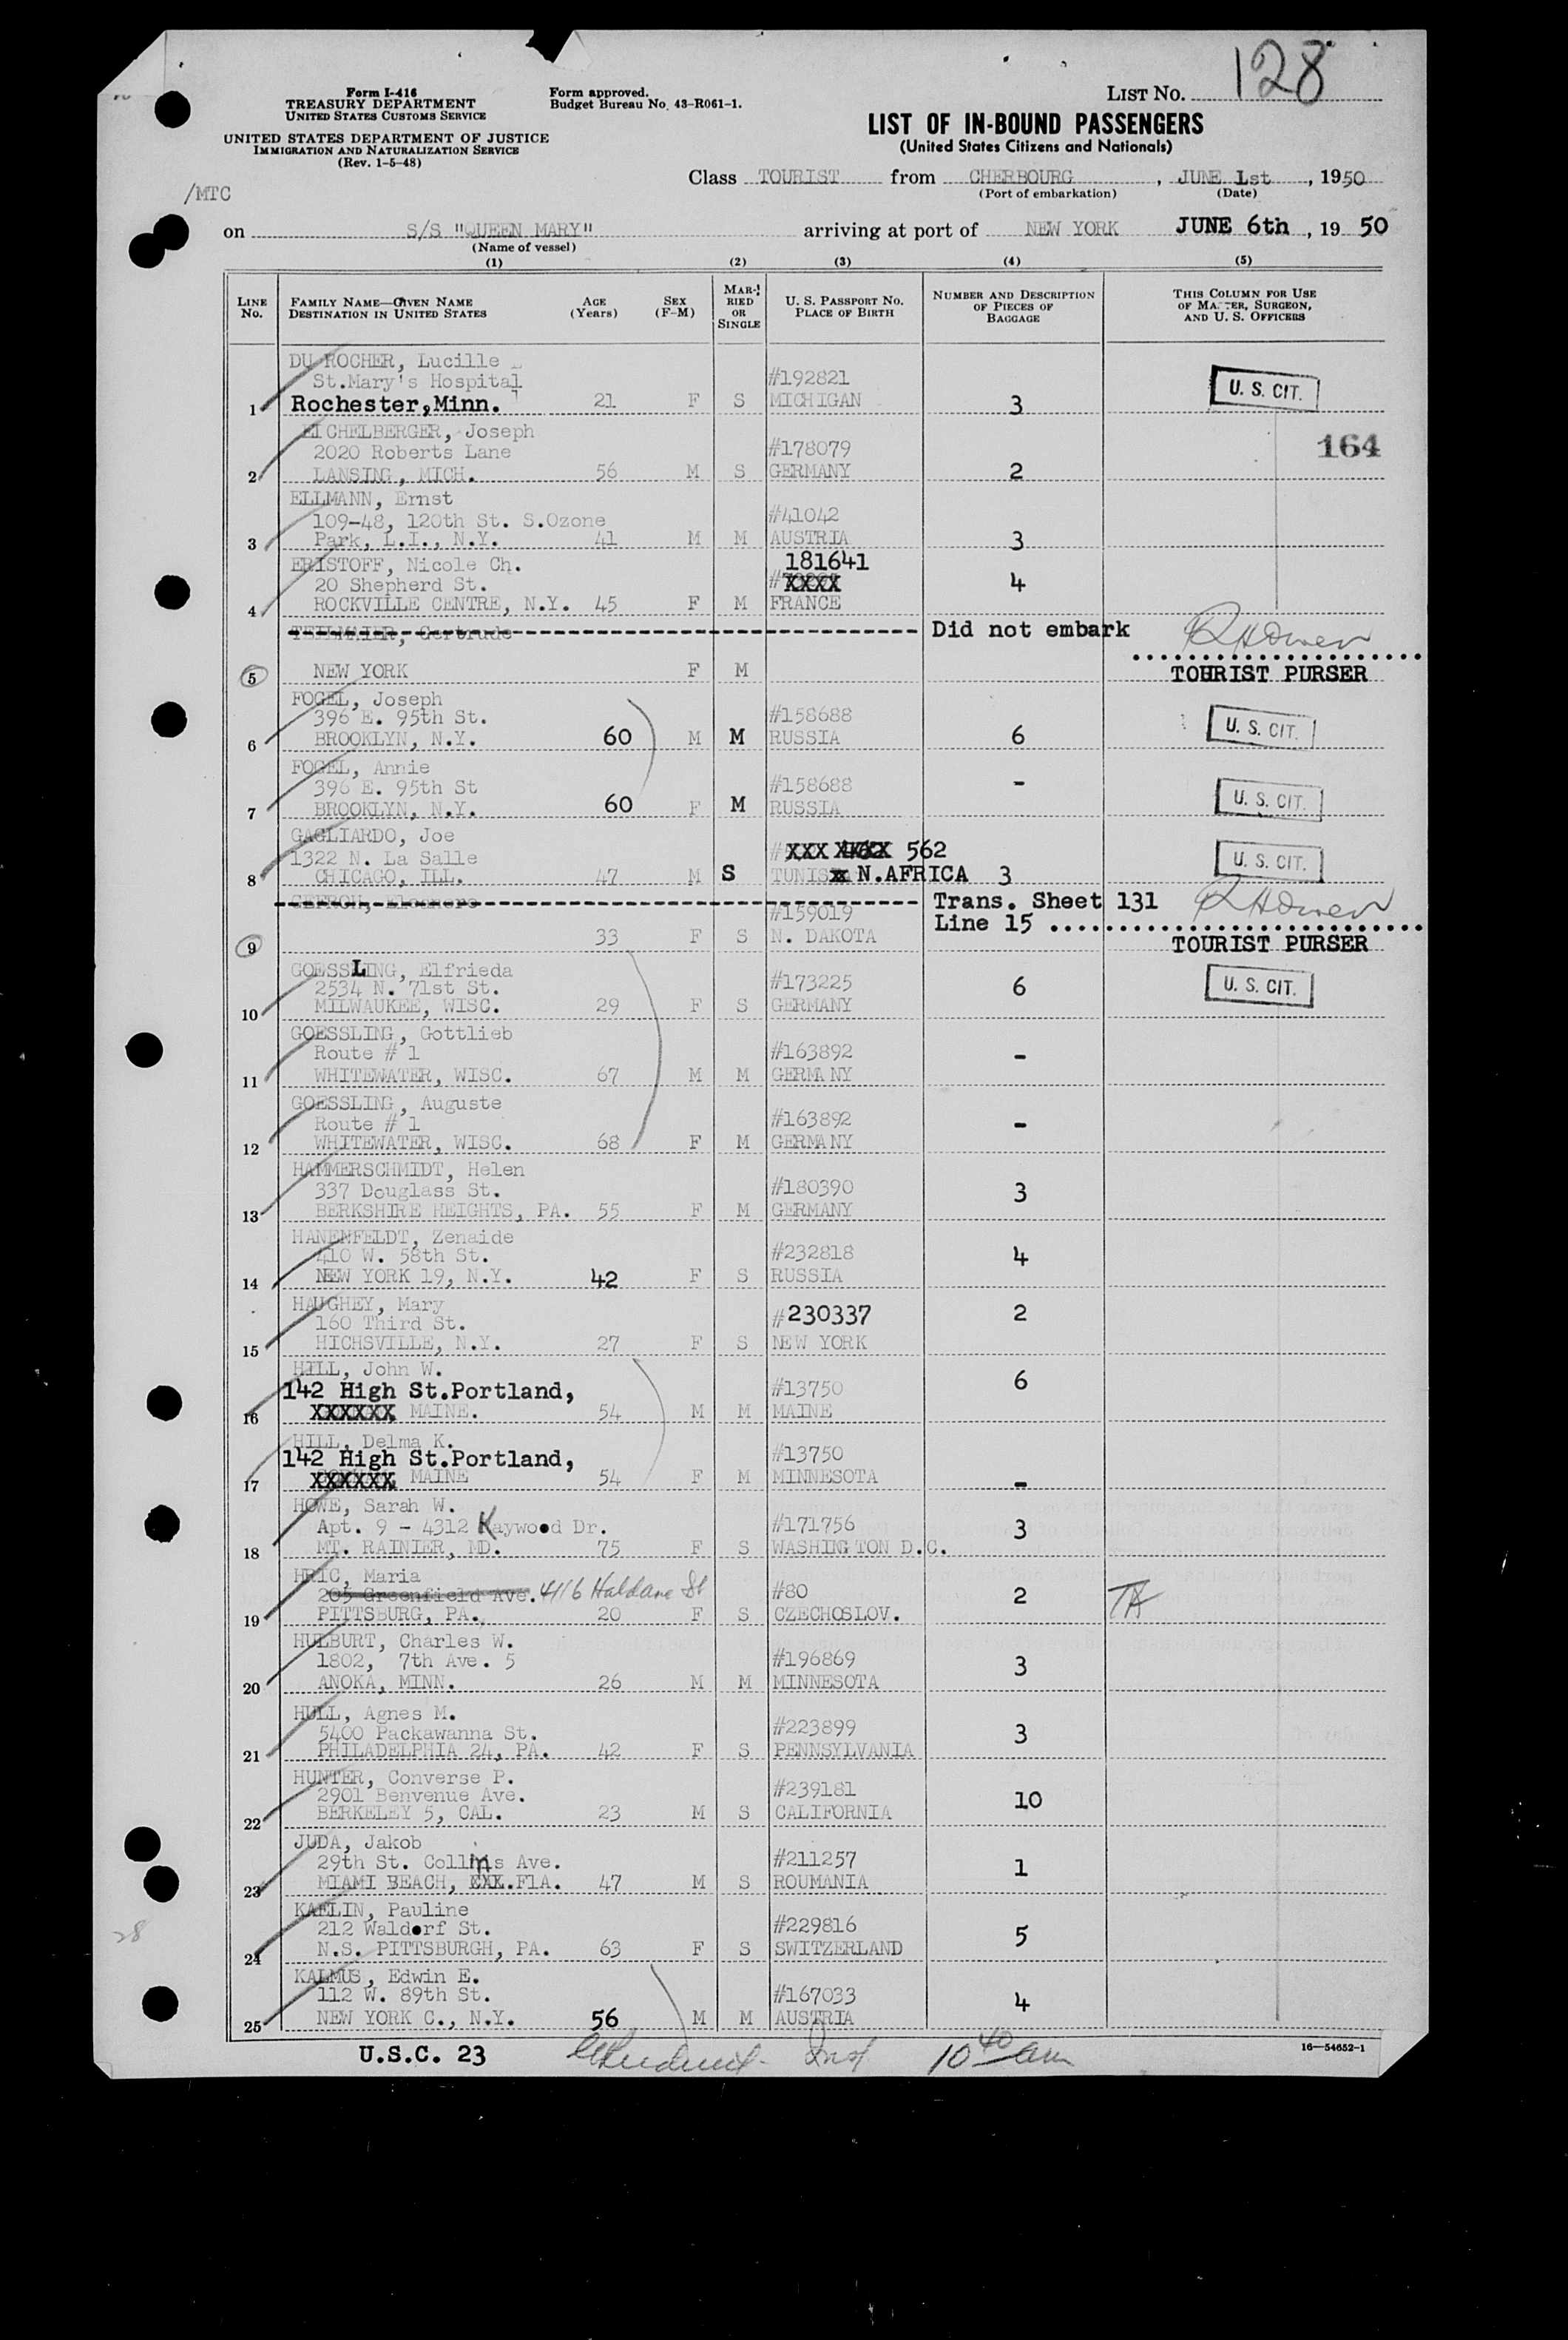 128
Form I-416
TREASURY DEPARTMENT
UNITED STATES CUSTOMS SERVICE
UNITED STATES DEPARTMENT OF JUSTICE
IMMIGRATION AND NATURALIZATION SERVICE
(Rev. 1-5-48)
Form approved.
Budget Bureau No. 43-R061-1.
LIST No.
LIST OF IN-BOUND PASSENGERS
(United States Citizens and Nationals)
/MTC
Class TOURIST from CHERBOURG, JUNE 1st, 1950
(Port of embarkation) (Date)
on S/S "QUEEN MARY" arriving at port of NEW YORK JUNE 6th, 19 50
(Name of vessel)
(1) (2) (3) (4) (5)
LINE No. FAMILY NAME—GIVEN NAME DESTINATION IN UNITED STATES AGE (Years) SEX (F-M) MARRIED OR SINGLE U. S. PASSPORT NO. PLACE OF BIRTH NUMBER AND DESCRIPTION OF PIECES OF BAGGAGE THIS COLUMN FOR USE OF MASTER, SURGEON, AND U. S. OFFICERS
DU ROCHER, Lucille
St.Mary's Hospital #192821 U. S. CIT.
1 Rochester,Minn. 21 F S MICHIGAN 3
EICHELBERGER, Joseph
2020 Roberts Lane #178079 164
2 LANSING, MICH. 56 M S GERMANY 2
ELLMANN, Ernst
109-48, 120th St. S.Ozone #41042
3 Park, L.I., N.Y. 41 M M AUSTRIA 3
ERISTOFF, Nicole Ch. 181641
20 Shepherd St. #XXXX 4
4 ROCKVILLE CENTRE, N.Y. 45 F M FRANCE
TEILMAIER, Gertrude Did not embark
5 NEW YORK F M TOURIST PURSER
FOGEL, Joseph
396 E. 95th St. #158688 U. S. CIT.
6 BROOKLYN, N.Y. 60 M M RUSSIA 6
FOGEL, Annie
396 E. 95th St #158688 - U. S. CIT.
7 BROOKLYN, N.Y. 60 F M RUSSIA
GAGLIARDO, Joe
1322 N. La Salle #XXX XXXX 562 U. S. CIT.
8 CHICAGO, ILL. 47 M S TUNIS N.AFRICA 3
GEFROH, Eleanore Trans. Sheet 131
#159019 Line 15
9 33 F S N. DAKOTA TOURIST PURSER
GOESSLING, Elfrieda
2534 N. 71st St. #173225 6 U. S. CIT.
10 MILWAUKEE, WISC. 29 F S GERMANY
GOESSLING, Gottlieb
Route # 1 #163892 -
11 WHITEWATER, WISC. 67 M M GERMANY
GOESSLING, Auguste
Route # 1 #163892 -
12 WHITEWATER, WISC. 68 F M GERMANY
HAMMERSCHMIDT, Helen
337 Douglass St. #180390 3
13 BERKSHIRE HEIGHTS, PA. 55 F M GERMANY
HANENFELDT, Zenaide
410 W. 58th St. #232818 4
14 NEW YORK 19, N.Y. 42 F S RUSSIA
HAUGHEY, Mary
160 Third St. #230337 2
15 HICHSVILLE, N.Y. 27 F S NEW YORK
HILL, John W.
142 High St.Portland, #13750 6
16 XXXXXX MAINE. 54 M M MAINE
HILL, Delma K.
142 High St.Portland, #13750
17 XXXXXX MAINE 54 F M MINNESOTA -
HOWE, Sarah W.
Apt. 9 - 4312 Kaywood Dr. #171756 3
18 MT. RAINIER, MD. 75 F S WASHINGTON D.C.
HRIC, Maria
205 Greenfield Ave. 4116 Haldane St #80 2 TA
19 PITTSBURG, PA. 20 F S CZECHOSLOV.
HULBURT, Charles W.
1802, 7th Ave. 5 #196869 3
20 ANOKA, MINN. 26 M M MINNESOTA
HULL, Agnes M.
5400 Packawanna St. #223899 3
21 PHILADELPHIA 24, PA. 42 F S PENNSYLVANIA
HUNTER, Converse P.
2901 Benvenue Ave. #239181 10
22 BERKELEY 5, CAL. 23 M S CALIFORNIA
JUDA, Jakob
29th St. Collins Ave. #211257 1
23 MIAMI BEACH, FlA. 47 M S ROUMANIA
KAELIN, Pauline
212 Waldorf St. #229816 5
24 N.S. PITTSBURGH, PA. 63 F S SWITZERLAND
KALMUS, Edwin E.
112 W. 89th St. #167033 4
25 NEW YORK C., N.Y. 56 M M AUSTRIA
28
U.S.C. 23 Insp 10 40 am
16—54652-1